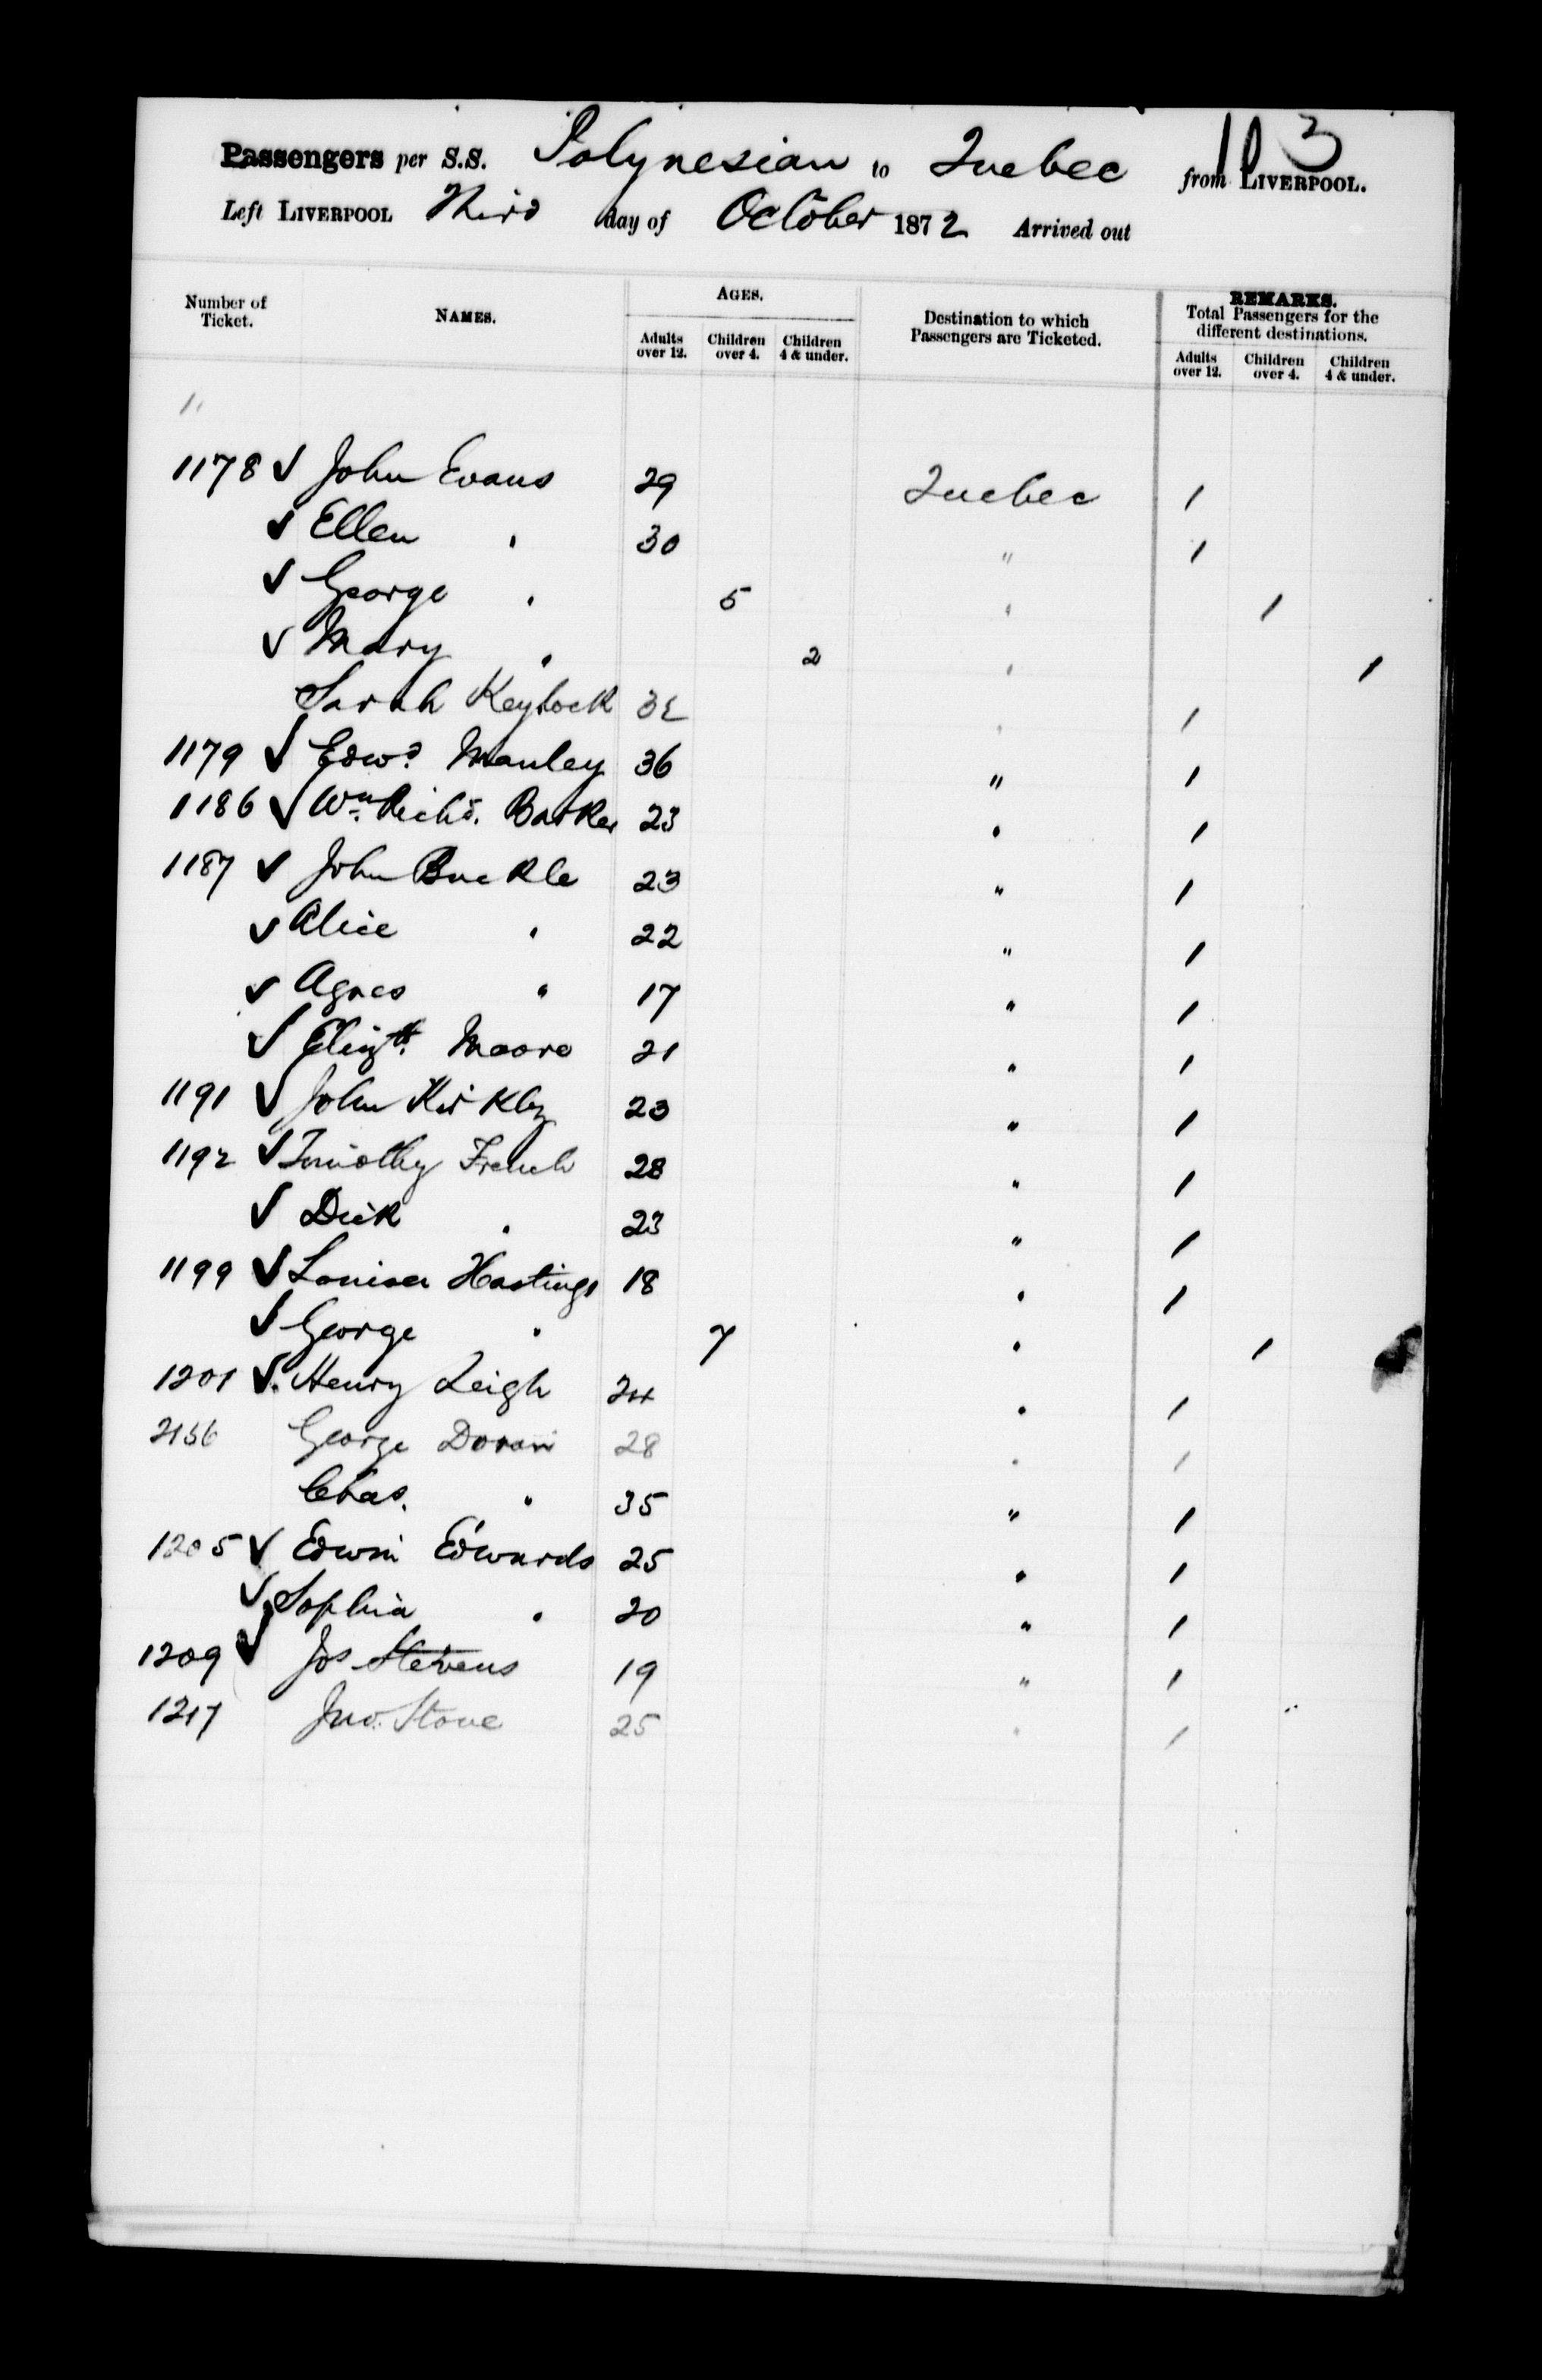 103
Passengers per S.S. Polynesian to Quebec from LIVERPOOL.
Left LIVERPOOL Third day of October 1872 Arrived out
Number of Ticket. NAMES. AGES. Destination to which Passengers are Ticketed. REMARKS. Total Passengers for the different destinations.
Adults over 12. Children over 4. Children 4 & under. Adults over 12. Children over 4. Children 4 & under.
1178 ✓ John Evans 29 Quebec 1
✓ Ellen " 30 " 1
✓ George " 5 " 1
✓ Mary " 2 " 1
Sarah Keylock 32 " 1
1179 ✓ Edwd. Manley 36 " 1
1186 ✓ Wm. Richd. Barker 23 " 1
1187 ✓ John Buckle 23 " 1
✓ Alice " 22 " 1
✓ Agnes " 17 " 1
✓ Elizth. Moore 21 " 1
1191 ✓ John Kirkby 23 " 1
1192 ✓ Timothy French 28 " 1
✓ Dick " 23 " 1
1199 ✓ Louisa Hastings 18 " 1
✓ George " 7 " 1
1201 ✓ Henry Leigh 24 " 1
2156 George Doran 28 " 1
Chas. " 35 " 1
1205 ✓ Edwin Edwards 25 " 1
✓ Sophia " 20 " 1
1209 ✓ Jos Stevens 19 " 1
1217 Jno. Stone 25 " 1